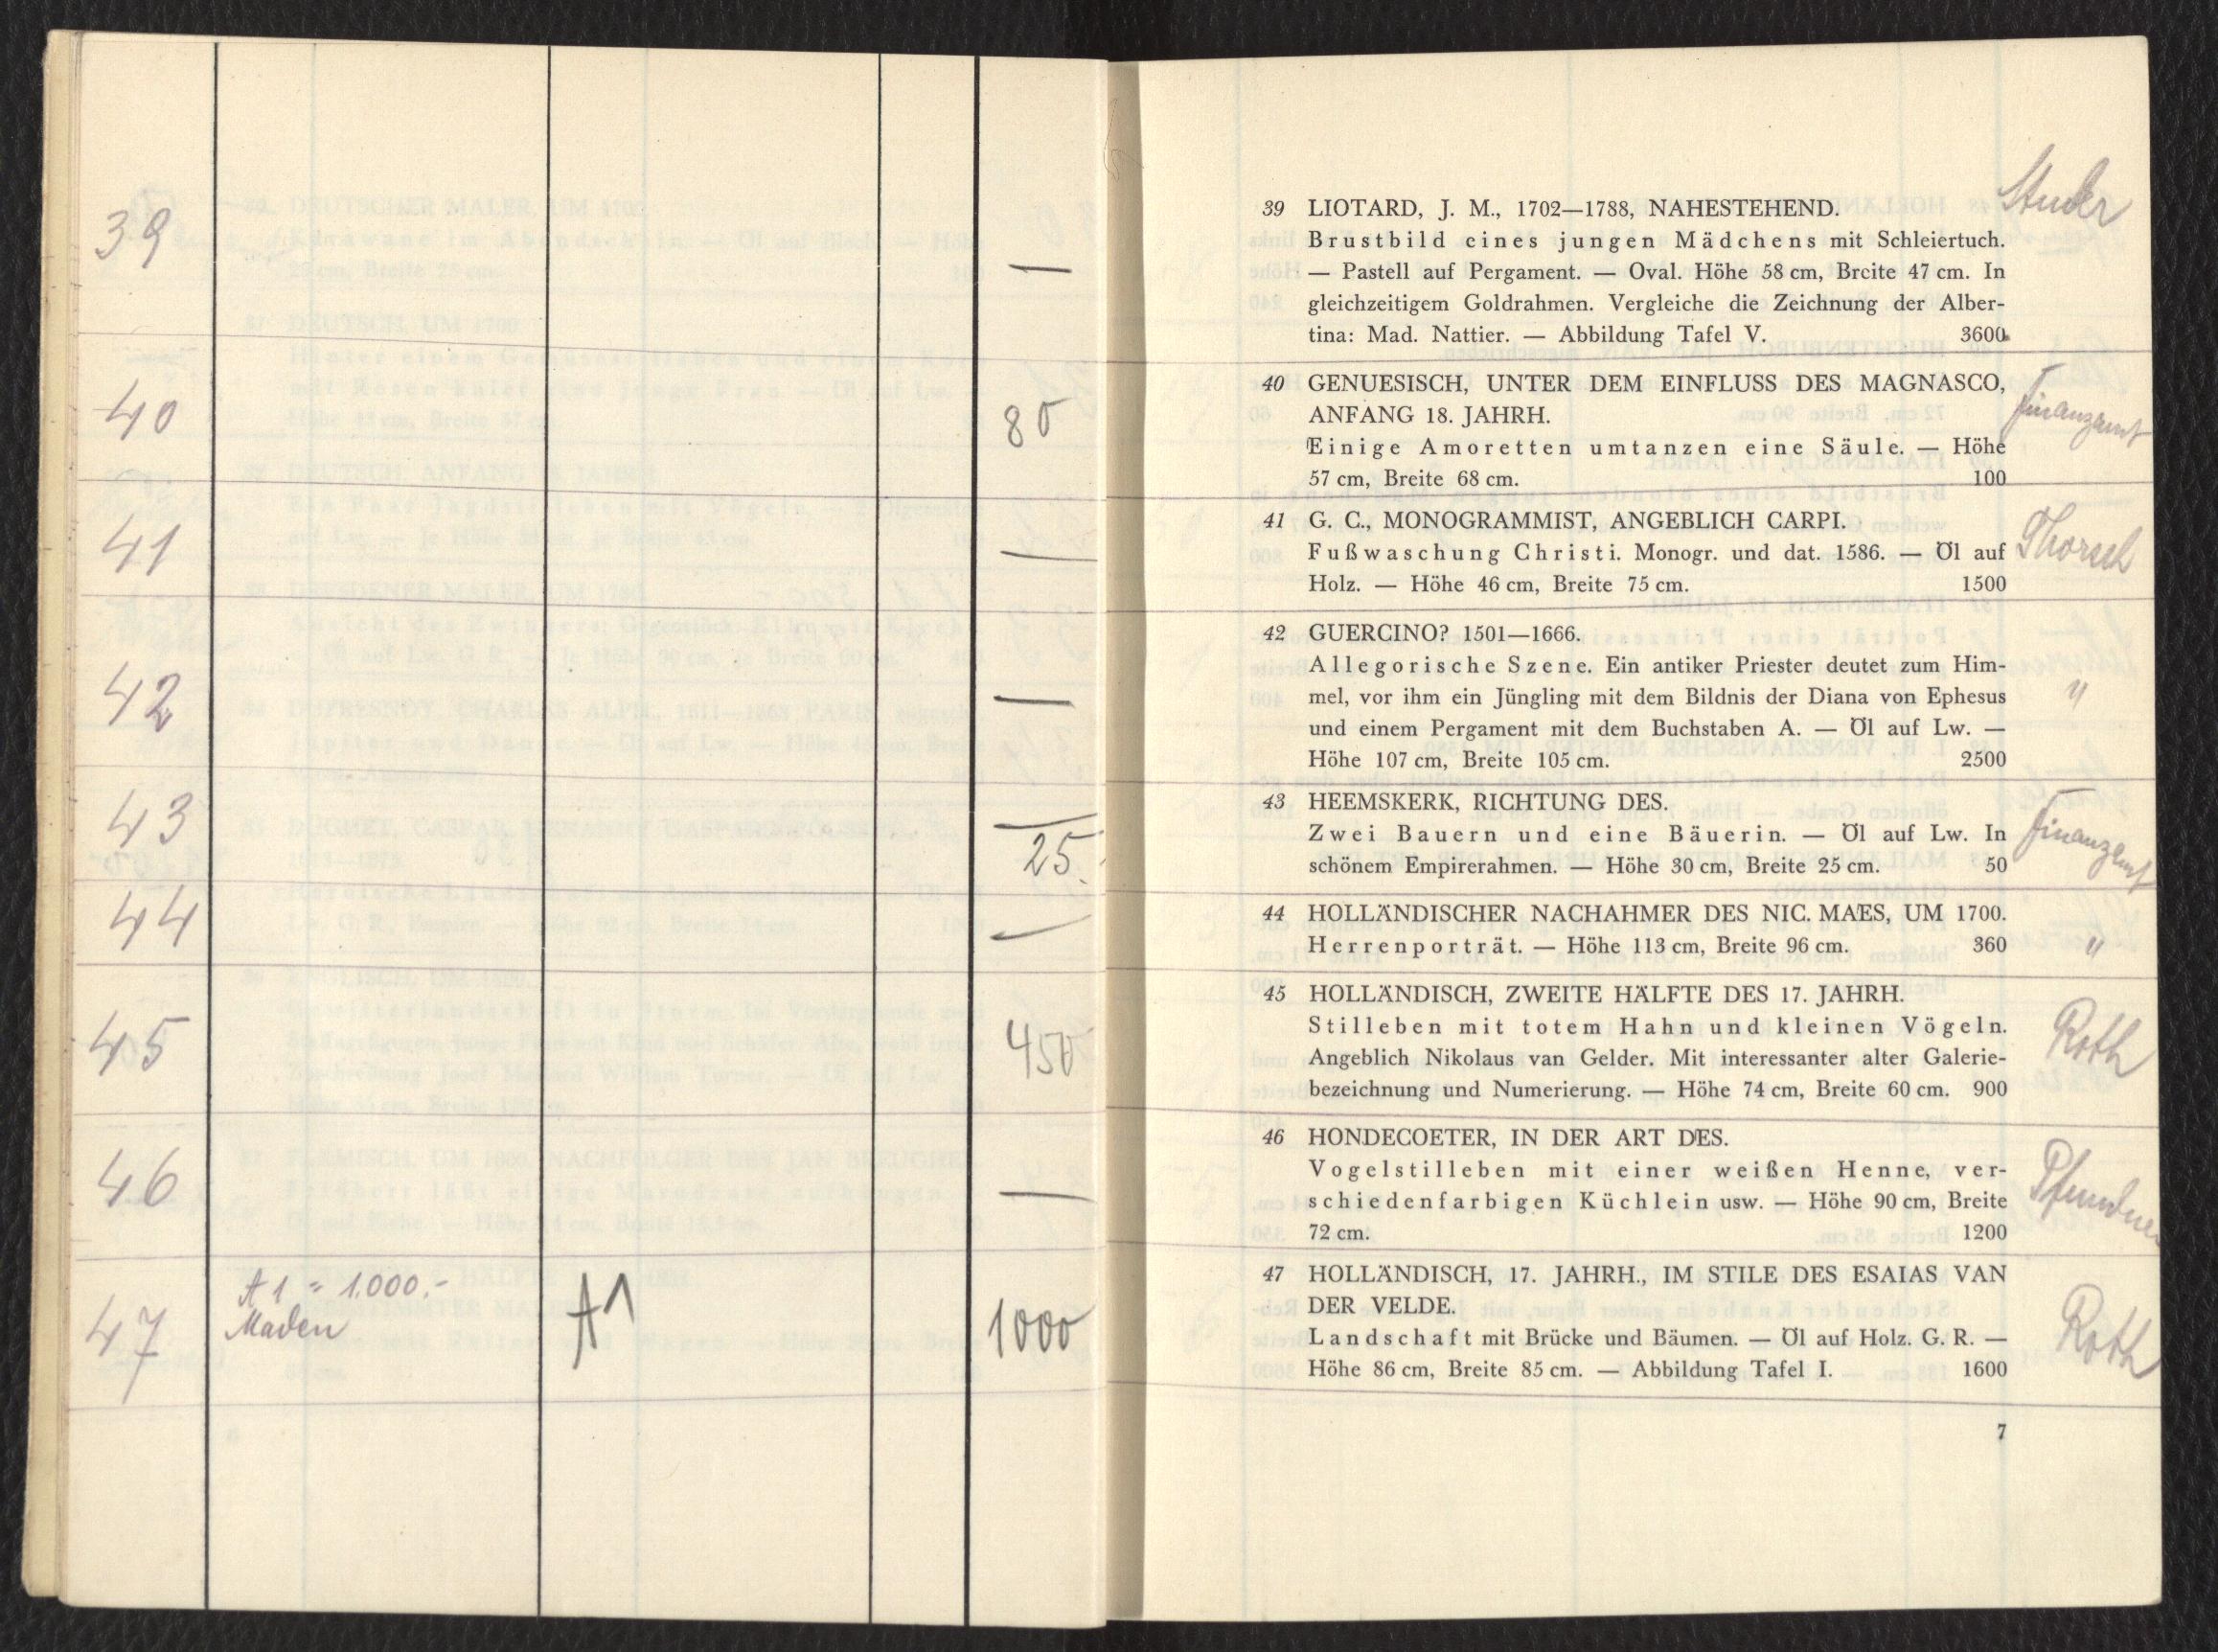 39
—
40
80
41
—
42
—
43
—
25
44
—
45
450
46
—
A 1 = 1.000.-
Maden
47
A1
1000
39 LIOTARD, J. M., 1702—1788, NAHESTEHEND.
Studer
Brustbild eines jungen Mädchens mit Schleiertuch.
— Pastell auf Pergament. — Oval. Höhe 58 cm, Breite 47 cm. In
gleichzeitigem Goldrahmen. Vergleiche die Zeichnung der Alber-
tina: Mad. Nattier. — Abbildung Tafel V. 3600
40 GENUESISCH, UNTER DEM EINFLUSS DES MAGNASCO,
ANFANG 18. JAHRH.
Finanzamt
Einige Amoretten umtanzen eine Säule. — Höhe
57 cm, Breite 68 cm. 100
41 G. C., MONOGRAMMIST, ANGEBLICH CARPI.
Fußwaschung Christi. Monogr. und dat. 1586. — Öl auf
Thorsch
Holz. — Höhe 46 cm, Breite 75 cm. 1500
42 GUERCINO? 1501—1666.
Allegorische Szene. Ein antiker Priester deutet zum Him-
mel, vor ihm ein Jüngling mit dem Bildnis der Diana von Ephesus
"
und einem Pergament mit dem Buchstaben A. — Öl auf Lw. —
Höhe 107 cm, Breite 105 cm. 2500
43 HEEMSKERK, RICHTUNG DES.
Zwei Bauern und eine Bäuerin. — Öl auf Lw. In
Finanzamt
schönem Empirerahmen. — Höhe 30 cm, Breite 25 cm. 50
44 HOLLÄNDISCHER NACHAHMER DES NIC. MAES, UM 1700.
Herrenporträt. — Höhe 113 cm, Breite 96 cm. 360
"
45 HOLLÄNDISCH, ZWEITE HÄLFTE DES 17. JAHRH.
Stilleben mit totem Hahn und kleinen Vögeln.
Roth
Angeblich Nikolaus van Gelder. Mit interessanter alter Galerie-
bezeichnung und Numerierung. — Höhe 74 cm, Breite 60 cm. 900
46 HONDECOETER, IN DER ART DES.
Vogelstilleben mit einer weißen Henne, ver-
schiedenfarbigen Küchlein usw. — Höhe 90 cm, Breite
72 cm. 1200
47 HOLLÄNDISCH, 17. JAHRH., IM STILE DES ESAIAS VAN
DER VELDE.
Roth
Landschaft mit Brücke und Bäumen. — Öl auf Holz. G. R. —
Höhe 86 cm, Breite 85 cm. — Abbildung Tafel I. 1600
7